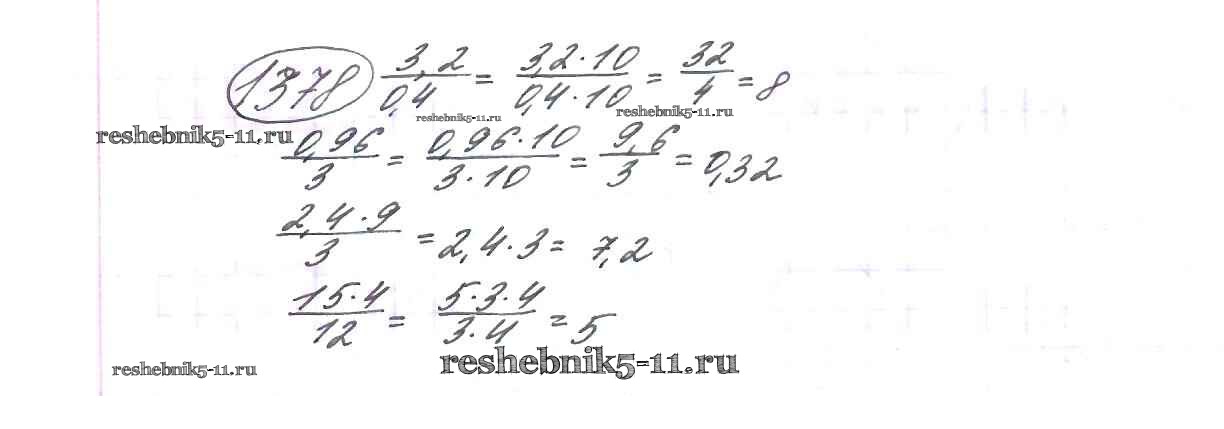 1378 3,2/0,4 = 3,2·10/0,4·10 = 32/4 = 8
reshebnik5-11.ru reshebnik5-11.ru reshebnik5-11.ru
0,96/3 = 0,96·10/3·10 = 9,6/3 = 0,32
2,4·9/3 = 2,4·3 = 7,2
15·4/12 = 5·3·4/3·4 = 5
reshebnik5-11.ru reshebnik5-11.ru